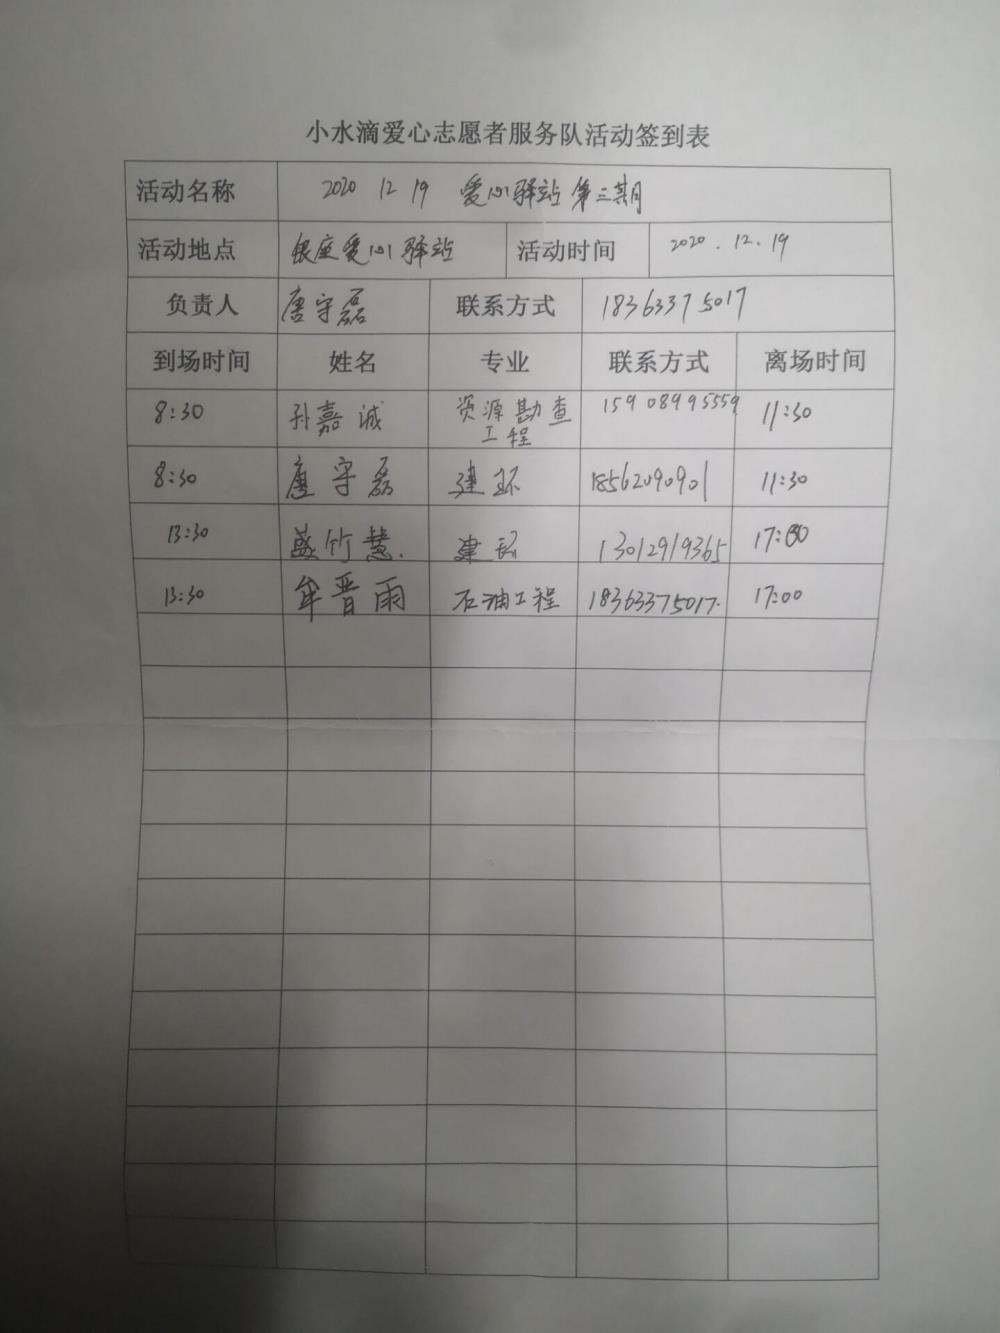 小水滴爱心志愿者服务队活动签到表
活动名称 2020 12 19 爱心驿站第三期
活动地点 银座爱心驿站 活动时间 2020.12.19
负责人 唐守磊 联系方式 18363375017
到场时间 姓名 专业 联系方式 离场时间
8:30 孙嘉诚 资源勘查 15908995559 11:30
工程
8:30 唐守磊 建环 18562090901 11:30
13:30 盛竹慧. 建环 13012919365 17:00
13:30 牟晋雨 石油工程 18363375017. 17:00